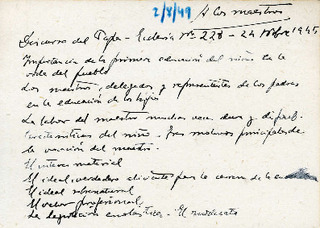 2/8/49 A los maestros
Discurso del Papa - Ecclesia Nº 228 - 24 Nbre 1945
Importancia de la primera educación del niño en la
vida del pueblo
Los maestros, delegados y representantes de los padres
en la educación de los hijos
La labor del maestro muchas veces dura y difícil
características del niño. Tres motivos principales de
la vocación del maestro.
El interés material
El ideal, verdadero aliciente para la carrera de la
El ideal sobrenatural
El valor profesional
La legislación escolástica. El sindicato